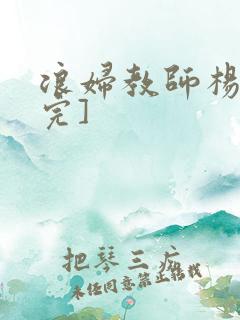 浪婦教師楊
完]
把琴三疚
未任同意禁止转载